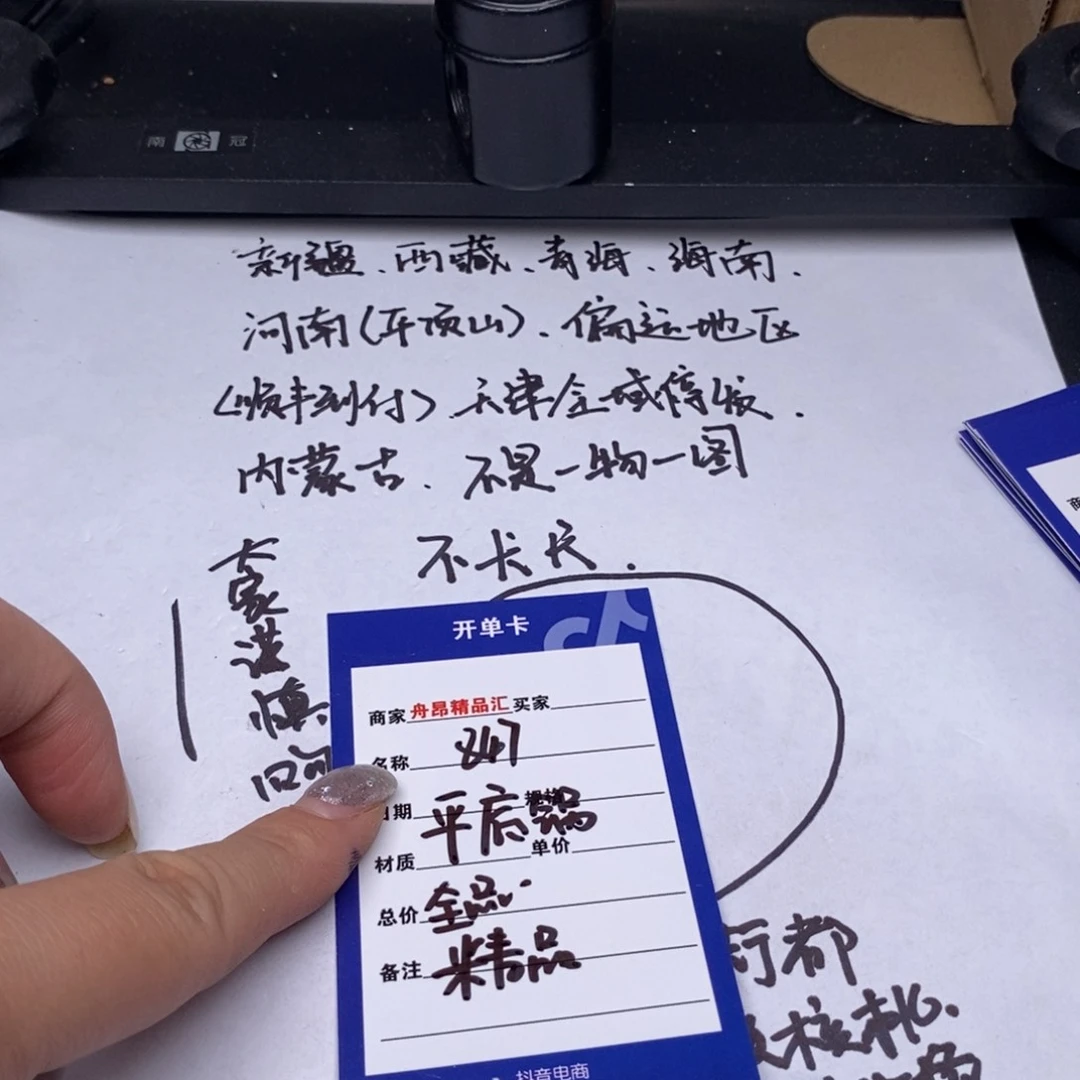 南 冠
新疆、西藏、青海、海南.
河南(平顶山)、偏远地区
(顺丰到付)天津全域停发.
内蒙古. 不是一物一图
不卡长.
大家谨慎
开单卡
商家 舟昂精品汇 买家
名称 847
日期 规格
平底锅
材质 单价
总价 全品.
备注 精品
抖音电商
都
核桃.